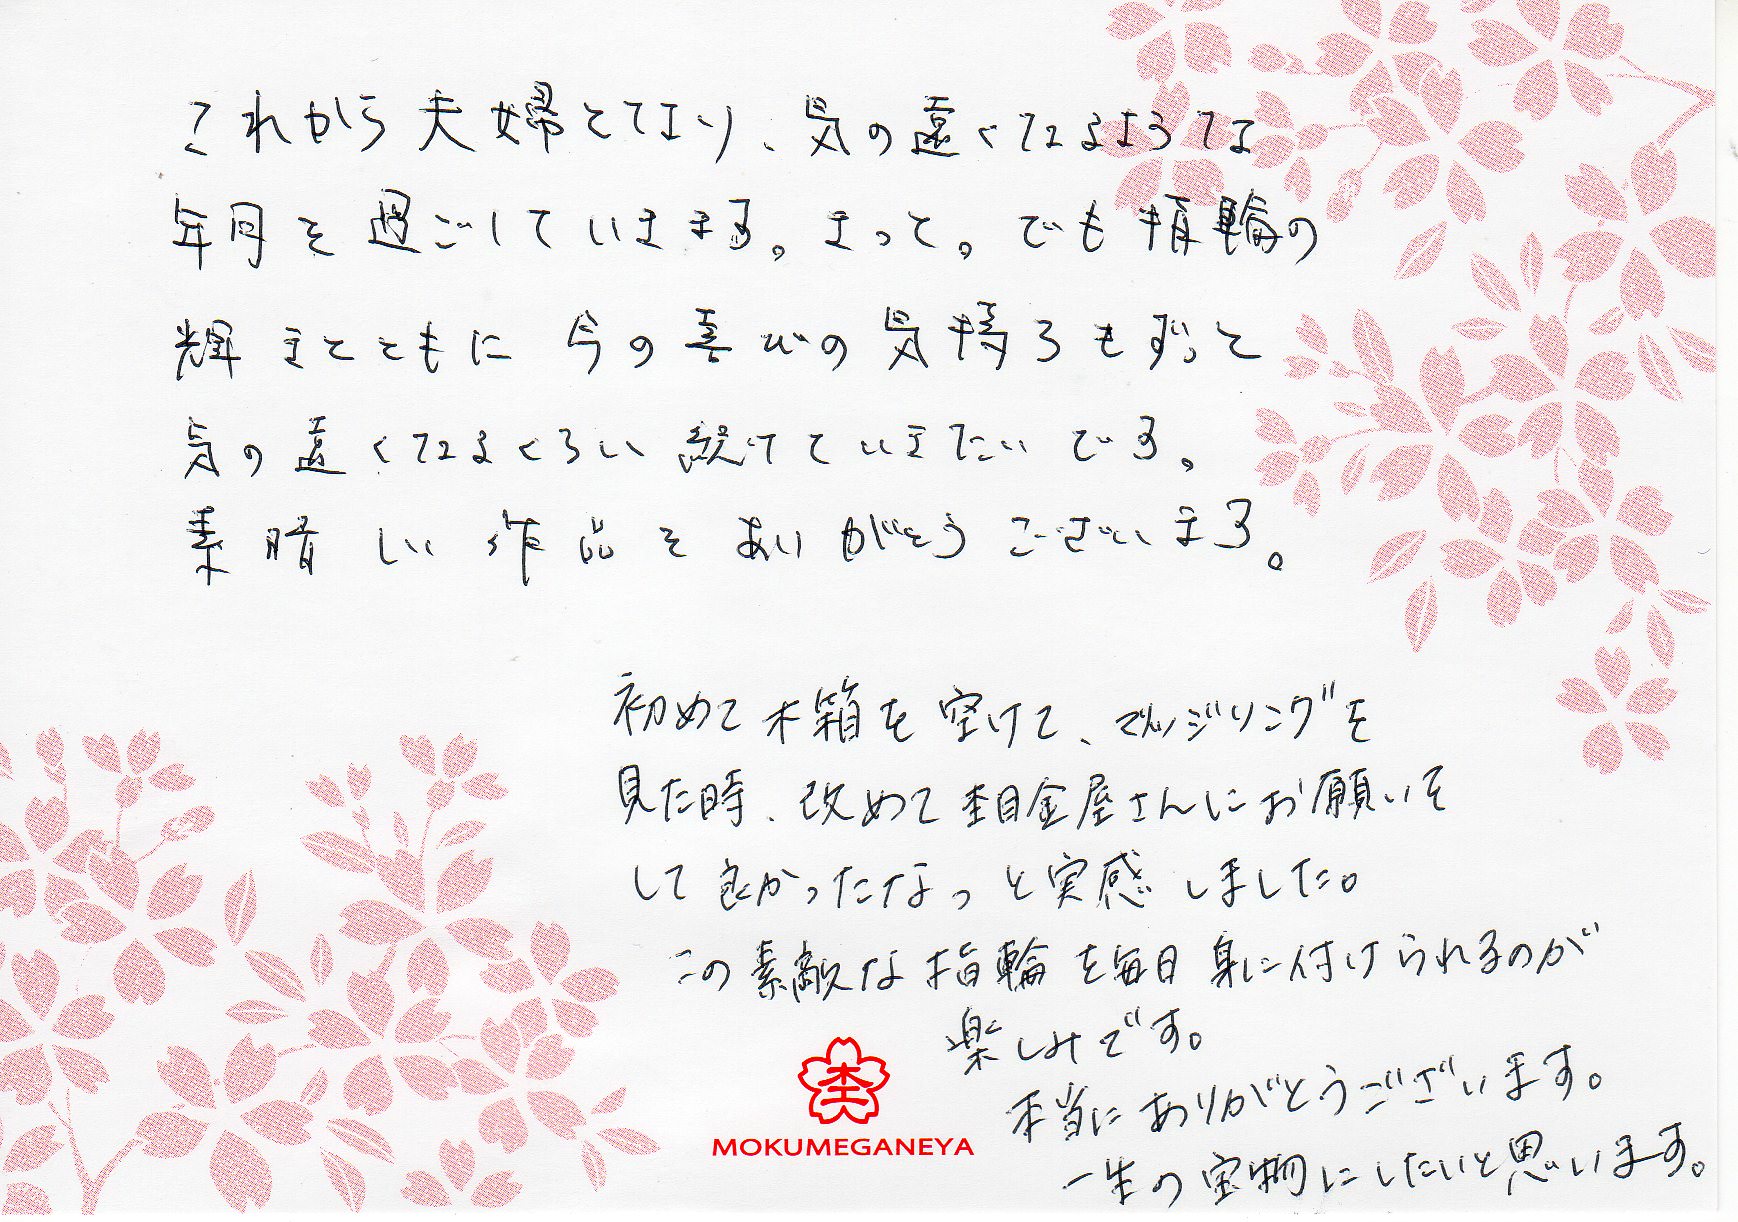 これから夫婦となり、気の遠くなるような
年月を過ごしていきます。きっと。でも指輪の
輝きとともに今の喜びの気持ちもずっと
気の遠くなるくらい続けていきたいです。
素晴しい作品をありがとうございます。
初めて木箱を空けて、マリッジリングを
見た時、改めて杢目金屋さんにお願いを
して良かったなっと実感しました。
この素敵な指輪を毎日身に付けられるのが
楽しみです。
本当にありがとうございます。
一生の宝物にしたいと思います。
杢
MOKUMEGANEYA